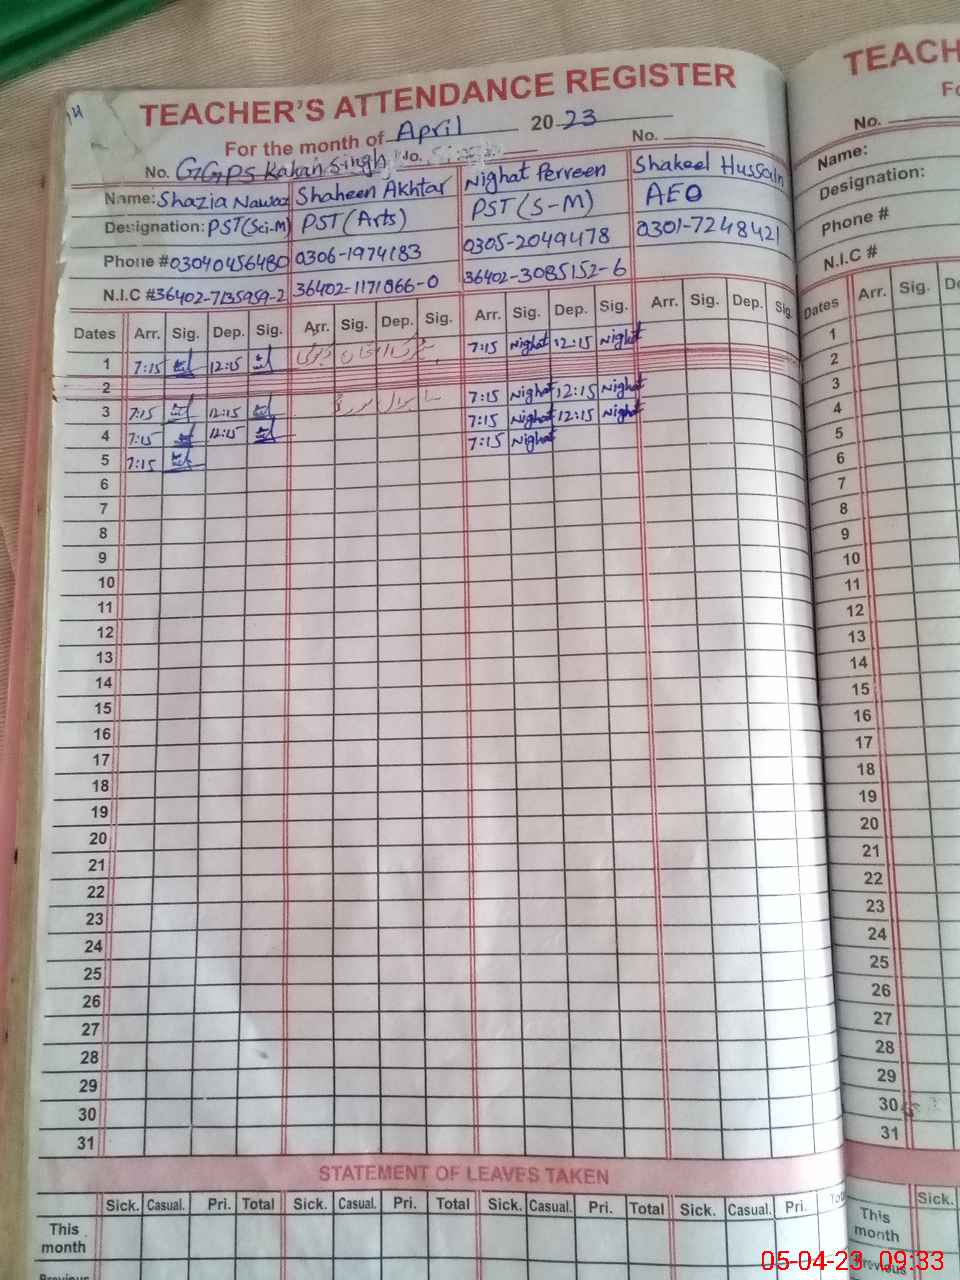 14
TEACHER'S ATTENDANCE REGISTER
For the month of April 20 23
No. GGPS Kakan Singh No. No.
Name: Shazia Nawaz Shaheen Akhtar Nighat Perveen Shakeel Hussain
Designation: PST(Sci-M) PST(Arts) PST(S-M) AEO
Phone # 03040456480 0306-1974183 0305-2049478 0301-7248421
N.I.C # 36402-7135959-2 36402-1171066-0 36402-3085152-6
Dates Arr. Sig. Dep. Sig. Arr. Sig. Dep. Sig. Arr. Sig. Dep. Sig. Arr. Sig. Dep. Sig.
1 7:15 12:15 7:15 Nighat 12:15 Nighat
2
3 7:15 12:15 7:15 Nighat 12:15 Nighat
4 7:15 12:15 7:15 Nighat 12:15 Nighat
5 7:15 7:15 Nighat
6
7
8
9
10
11
12
13
14
15
16
17
18
19
20
21
22
23
24
25
26
27
28
29
30
31
STATEMENT OF LEAVES TAKEN
Sick. Casual. Pri. Total Sick. Casual. Pri. Total Sick. Casual. Pri. Total Sick. Casual. Pri.
This
month
Previous
TEACH
No.
Name:
Designation:
Phone #
N.I.C #
Dates Arr. Sig.
1
2
3
4
5
6
7
8
9
10
11
12
13
14
15
16
17
18
19
20
21
22
23
24
25
26
27
28
29
30
31
Sick.
This
month
Previous
05-04-23 09:33